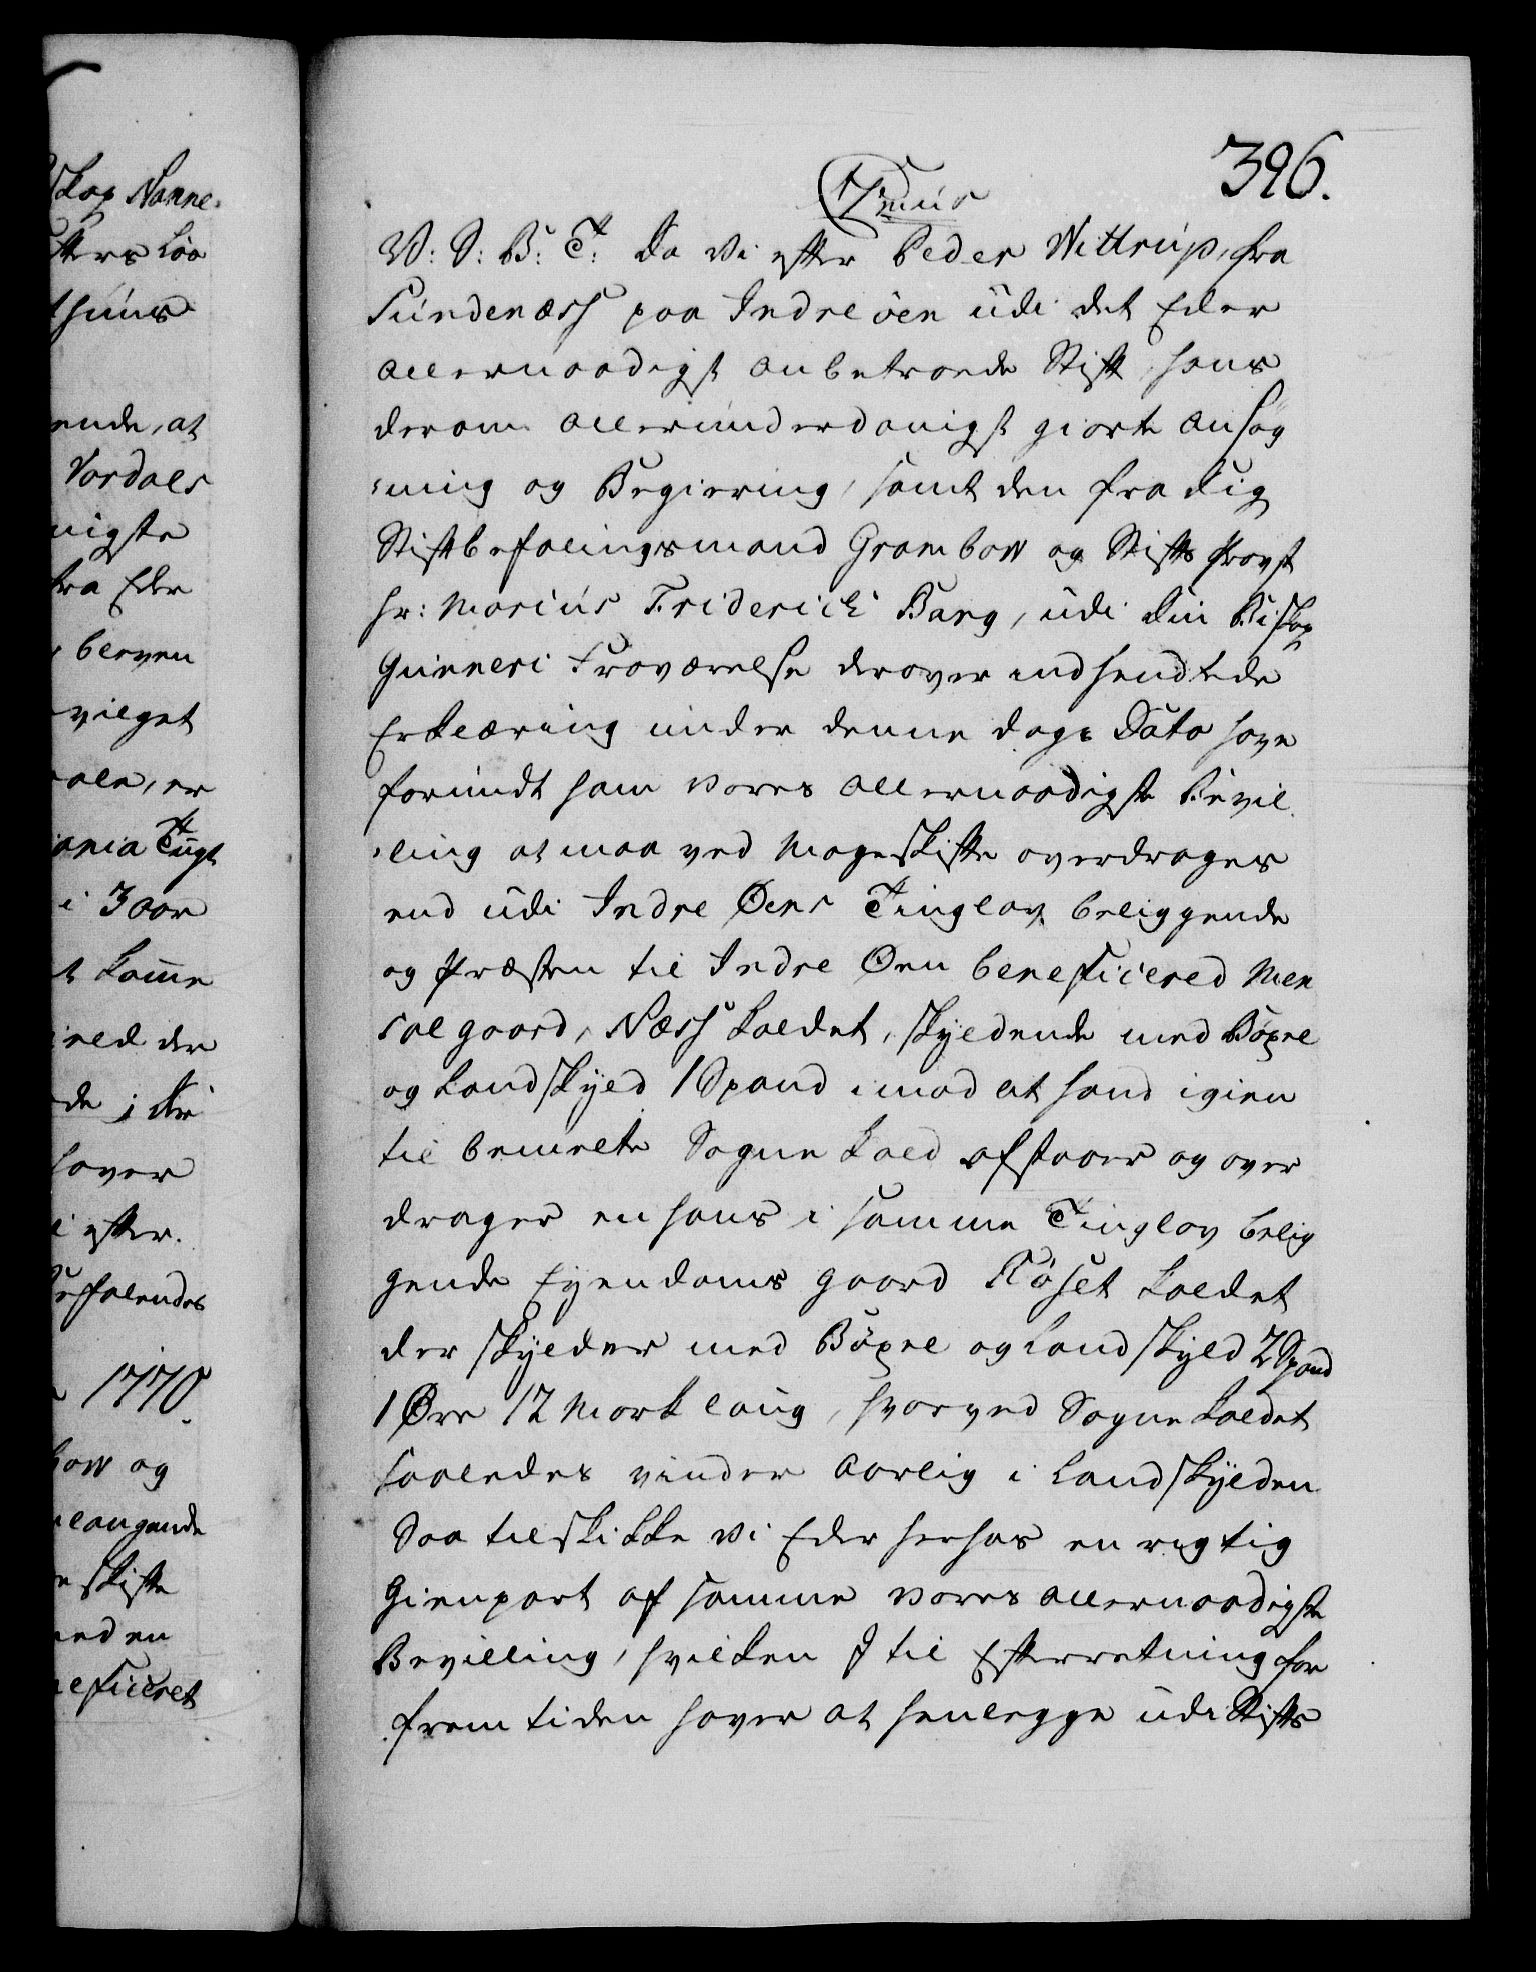 396.
V: S: B: T: Da Vi efter Peder Wittrup, fra
Sundenæss paa Indreöen udi det Eder
allernaadigst anbetroede Stift, hans
derom allerunderdanigst giorte Ansøg
ning og Begiering, samt den fra dig
Stiftbefalingsmand Grambow og Stifts Provst
Hr: Marius Friderich Bang, udi din Biskop
Gunneri Fraværelse derover indsendtede
Erklæring under denne dags Dato have
forundt ham vores allernaadigste Bevil
ling at maa ved Mageskifte overdrages
end udi Indre Øens Tinglav beliggende
og Præsten til Indre Øen beneficered Men
sal gaard, Næss kaldet, skyldende med Böxel
og Landskyld 1 Spand imod at hand igien
til bemelte Sognekald afstaaer og over
drager en hans i samme Tinglav belig
gende Eyendoms gaard Röset kaldet
der skylder med Böxel og Landskyld 2 Spand
1 Øre 12 Mark laug, hvorved Sognekaldet
saaledes vinder aarlig i Landskylden
Saa tilskikke Vi Eder herhos en rigtig
Gienpart af samme vores allernaadigste
Bevilling, hvilken I til Efterretning for
fremtiden haver at henlegge udi Stifts
skop Nanne
ters Löa
thuus
ende, at
Vordals
nigste
fra Eder
berven
vilget
ale, er
ania Tugt
i 3 aar
t komme
ield der
de i Dri
haver
i efter.
Befalendes
1770.
bow og
elangende
e skifte
ed en
eficeret